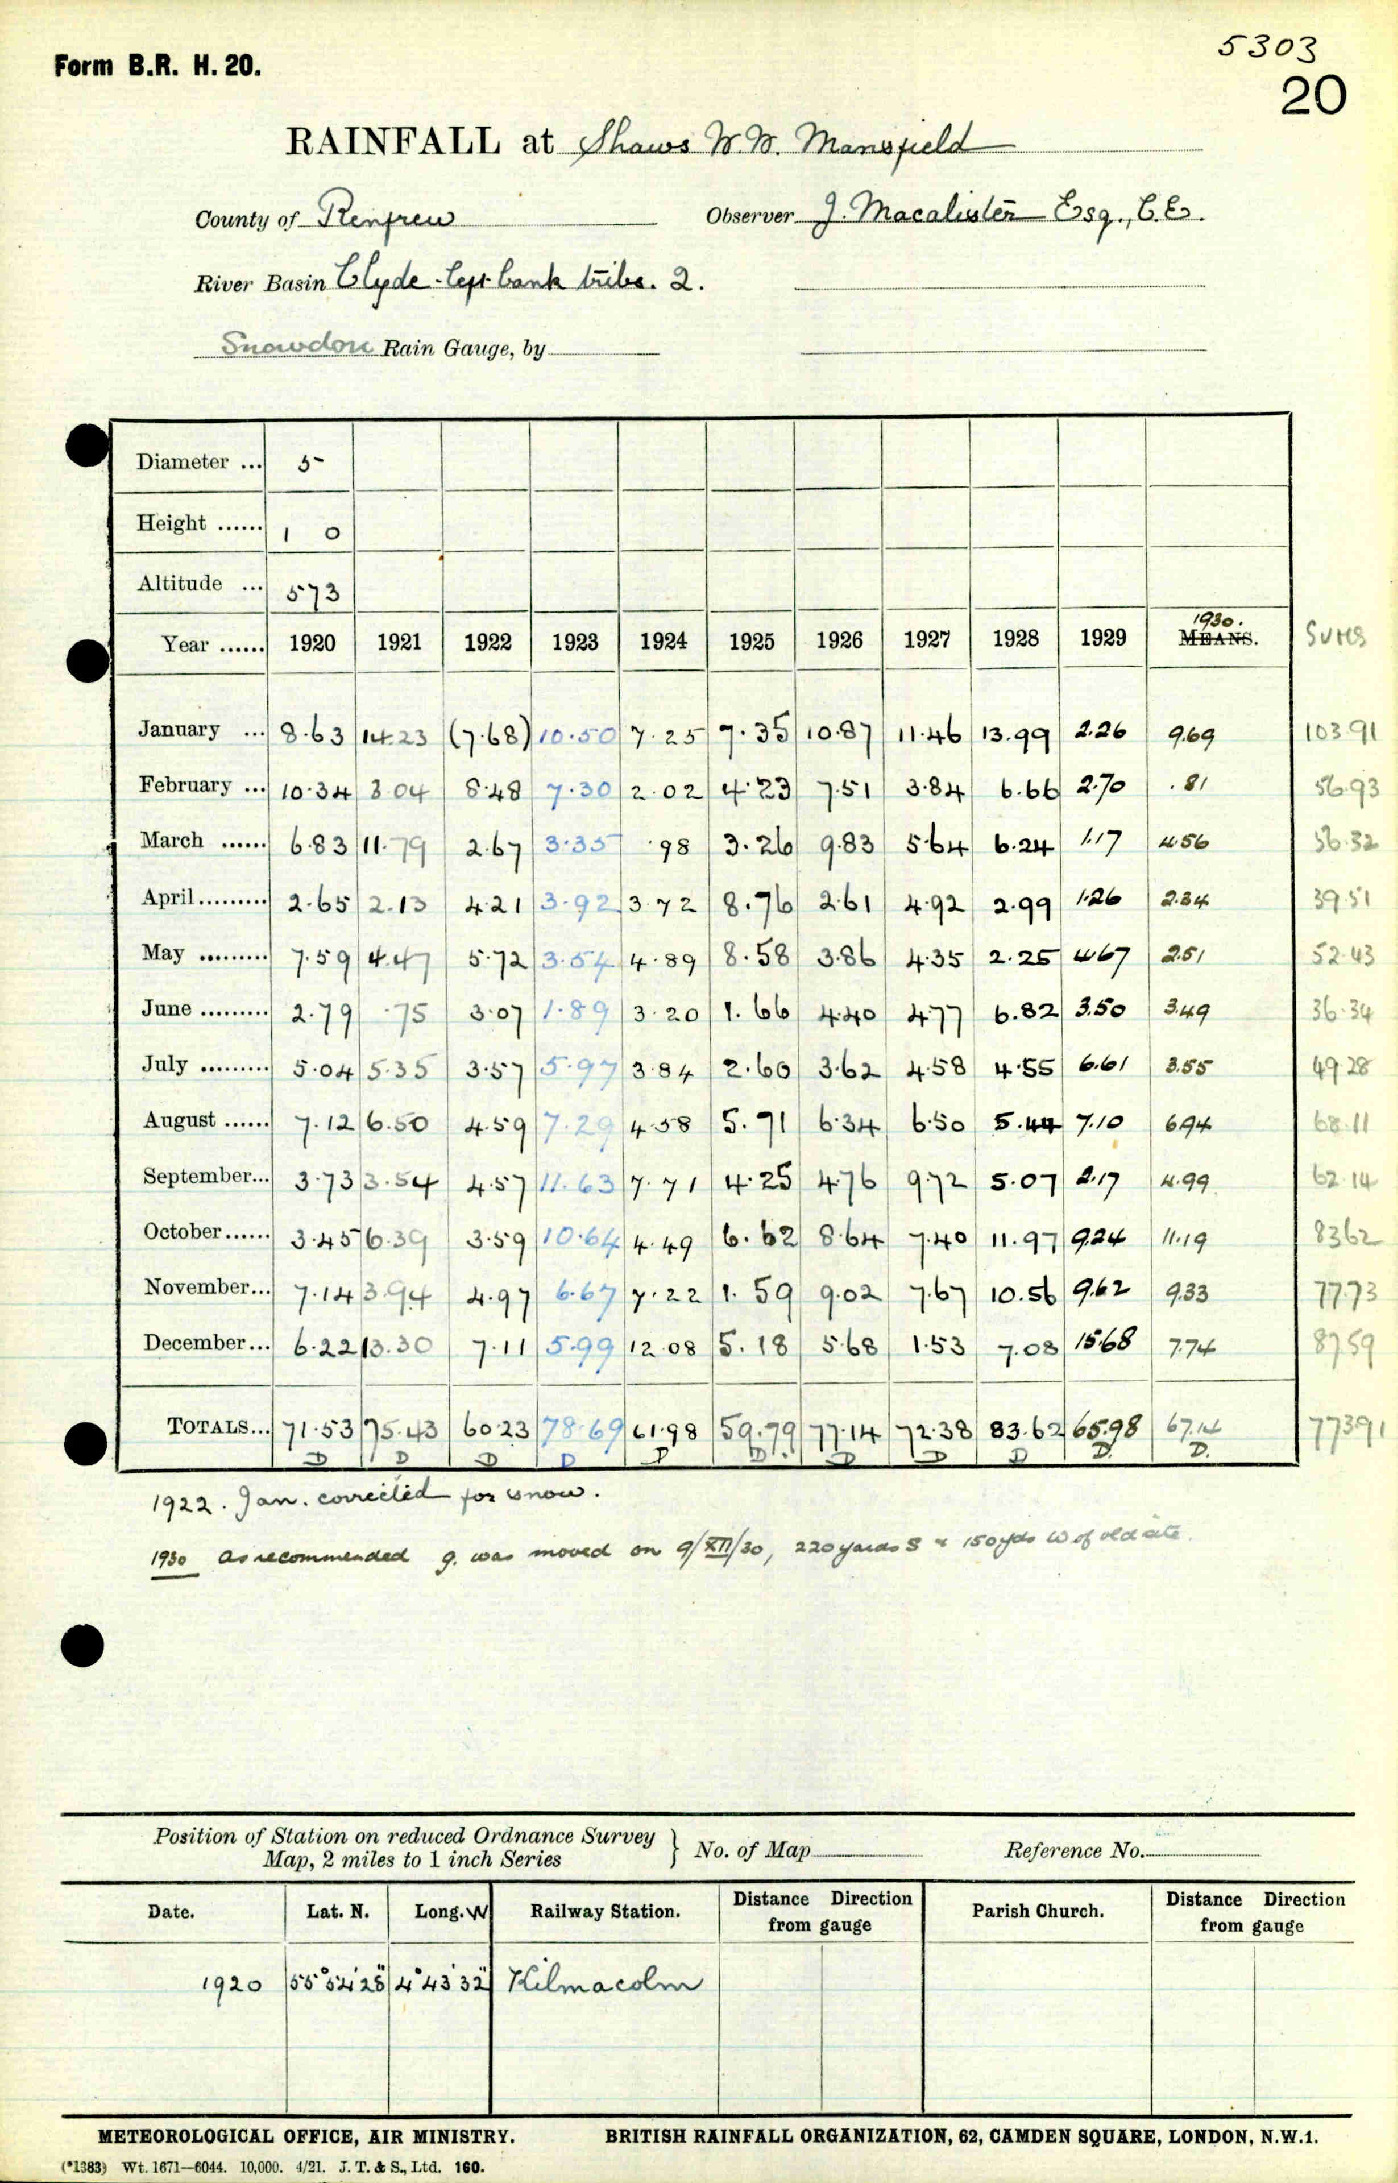 5303
Form B.R. H. 20.
20
RAINFALL at Shaws W.W. Mansfield
County of Renfrew Observer J. Macalister Esq., C.E.
River Basin Clyde-left bank tribs. 2.
Snowdon Rain Gauge, by
Diameter ... 5
Height ...... 1 0
Altitude ... 573
1930.
Year ...... 1920 1921 1922 1923 1924 1925 1926 1927 1928 1929 MEANS. SUMS
January ... 8.63 14.23 (7.68) 10.50 7.25 7.35 10.87 11.46 13.99 2.26 9.69 103.91
February ... 10.34 3.04 8.48 7.30 2.02 4.23 7.51 3.84 6.66 2.70 .81 56.93
March ...... 6.83 11.79 2.67 3.35 .98 3.26 9.83 5.64 6.24 1.17 4.56 56.32
April......... 2.65 2.13 4.21 3.92 3.72 8.76 2.61 4.92 2.99 1.26 2.34 39.51
May ......... 7.59 4.47 5.72 3.54 4.89 8.58 3.86 4.35 2.25 4.67 2.51 52.43
June ......... 2.79 .75 3.07 1.89 3.20 1.66 4.40 4.77 6.82 3.50 3.49 36.34
July ......... 5.04 5.35 3.57 5.97 3.84 2.60 3.62 4.58 4.55 6.61 3.55 49.28
August ...... 7.12 6.50 4.59 7.29 4.58 5.71 6.34 6.50 5.44 7.10 6.94 68.11
September... 3.73 3.54 4.57 11.63 7.71 4.25 4.76 9.72 5.07 2.17 4.99 62.14
October...... 3.45 6.39 3.59 10.64 4.49 6.62 8.64 7.40 11.97 9.24 11.19 83.62
November... 7.14 3.94 4.97 6.67 7.22 1.59 9.02 7.67 10.56 9.62 9.33 77.73
December... 6.22 13.30 7.11 5.99 12.08 5.18 5.68 1.53 7.08 15.68 7.74 87.59
TOTALS... 71.53 75.43 60.23 78.69 61.98 59.79 77.14 72.38 83.62 65.98 67.14 773.91
D D D D D D D D D D. D.
1922. Jan. corrected for snow.
1930 As recommended g. was moved on 9/XII/30, 220 yards S & 150 yds W of old site.
Position of Station on reduced Ordnance Survey
Map, 2 miles to 1 inch Series } No. of Map Reference No.
Date. Lat. N. Long. W Railway Station. Distance Direction from gauge Parish Church. Distance Direction from gauge
1920 55°54'28" 4°43'32" Kilmacolm
METEOROLOGICAL OFFICE, AIR MINISTRY. BRITISH RAINFALL ORGANIZATION, 62, CAMDEN SQUARE, LONDON, N.W.1.
(*1383) Wt. 1671—6044. 10,000. 4/21. J. T. & S., Ltd. 160.